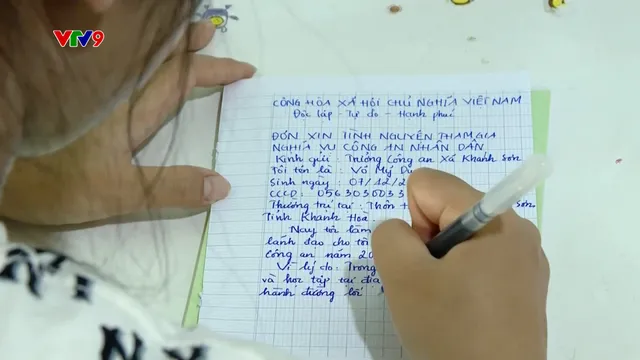 VTV9
CỘNG HÒA XÃ HỘI CHỦ NGHĨA VIỆT NAM
Độc lập - Tự do - Hạnh phúc
ĐƠN XIN TÌNH NGUYỆN THAM GIA
NGHĨA VỤ CÔNG AN NHÂN DÂN
Kính gửi : Trưởng Công an Xã Khánh Sơn
Tôi tên là : Võ Mỹ
Sinh ngày : 07/12/2
CCCD : 056303003
Thường trú tại : Thôn Sơn
Tỉnh Khánh Hòa
Nay tôi làm
lãnh đạo cho tô
công an năm 20
Vì lý do : Trong
và học tập tại địa
hành đường lối